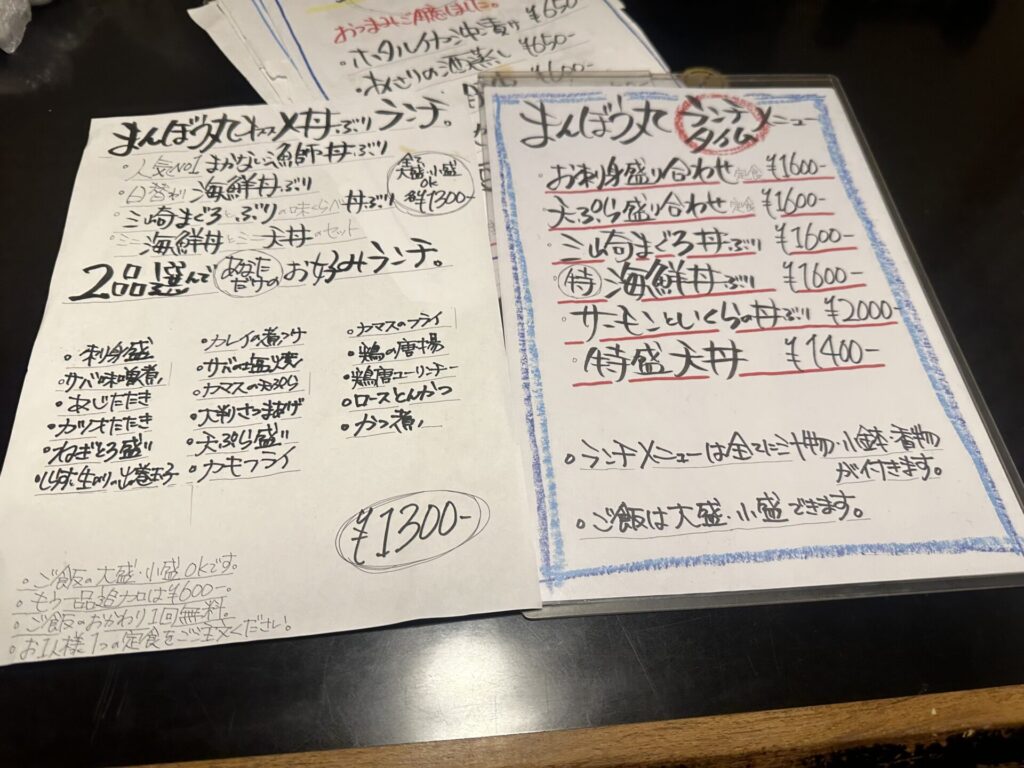 おつまみもご用意しました。 ¥650
・ホタルイカ沖漬け ¥650-
・あさりの酒蒸し ¥600-
まんぼう丸 丼ぶりランチ。
・人気NO1 まかない鰤丼ぶり
・日替り 海鮮丼ぶり
・三崎まぐろとぶりの味くらべ丼ぶり
・ミニ海鮮丼とミニ天丼のセット
大盛・小盛
OK
¥1300-
2品選んで あなただけの お好みランチ。
・刺身盛
・サバ味噌煮
・あじたたき
・カツオたたき
・ねぎとろ盛
・カレイの煮つけ
・サバの塩焼
・カマスの天ぷら
・大判さつまあげ
・天ぷら盛
・カマスのフライ
・鶏の唐揚
・鶏唐ユーリンチー
・ロースとんかつ
・かつ煮
¥1300-
・ご飯の大盛・小盛OKです。
・もう一品追加は¥600-
・ご飯のおかわり1回無料。
・お1人様1つの定食をご注文ください。
まんぼう丸 ランチタイム メニュー
お刺身盛り合わせ定食 ¥1600-
天ぷら盛り合わせ定食 ¥1600-
三崎まぐろ丼ぶり ¥1600-
特 海鮮丼ぶり ¥1600-
サーモンといくらの丼ぶり ¥2000-
特盛天丼 ¥1400-
・ランチメニューは全てに汁物・小鉢・香物
が付きます。
・ご飯は大盛・小盛できます。